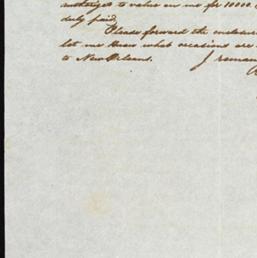 authorized to value on me for 10000.
duly paid.
Please forward the enclosure
let me know what occasions are
to New Orleans. I remain